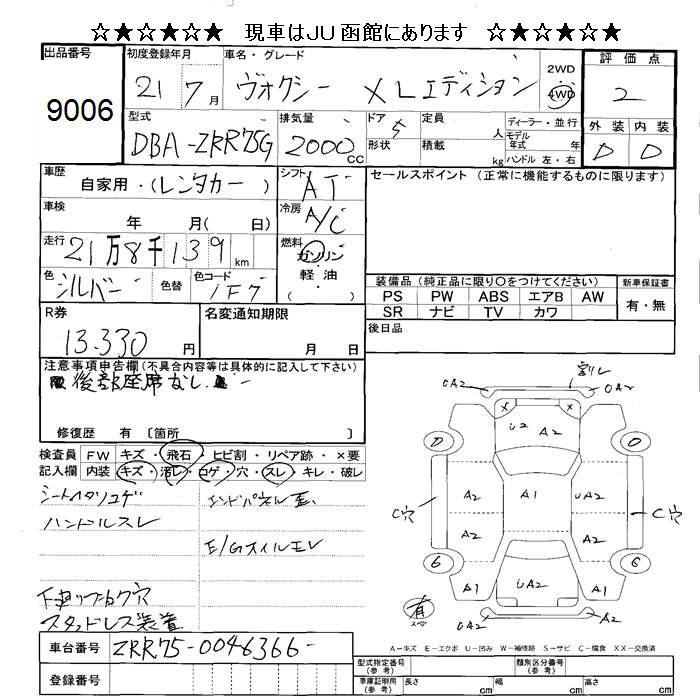 ☆★☆★☆★ 現車はJU函館にあります ☆★☆★☆★
出品番号
9006
初度登録年月
21 7月
車名・グレード
ヴォクシー XLエディション
2WD
4WD
評価点
2
型式
DBA-ZRR75G
排気量
2000cc
ドア 5
形状
定員 人
積載 kg
ディーラー・並行
モデル年式 年
ハンドル 左・右
外装 内装
D D
車歴
自家用・(レンタカー)
シフト AT
車検
年 月( 日)
冷房 A/C
走行
21万8千139km
燃料
ガソリン
軽油
( )
色 シルバー
色替
色コード 1F7
セールスポイント (正常に機能するものに限ります)
装備品(純正品に限り○をつけてください)
PS PW ABS エアB AW
SR ナビ TV カワ
新車保証書
有・無
後日品
R券
13.330円
名変通知期限
月 日
注意事項申告欄(不具合内容等は具体的に記入して下さい)
後部座席なし
修復歴 有 〔箇所 〕
検査員記入欄
FW キズ・飛石・ヒビ割・リペア跡・×要
内装 キズ・汚レ・コゲ・穴・スレ・キレ・破レ
シートヘタリコゲ
ハンドルスレ
エンドパネル歪
E/Gオイルモレ
スタッドレス装着
車台番号
ZRR75-0046366-
登録番号
割レ
UA2 UA2
× ×
U2 A2
A2 A1 UA2
C穴 C穴
A2 A2
6
A1 UA2 A1
UA2 UA2
有
A-キズ E-エクボ U-凹み W-補修跡 S-サビ C-腐食 XX-交換済
型式指定番号(参考)
類別区分番号(参考)
車庫証明用(参考)
長さ cm
幅 cm
高さ cm